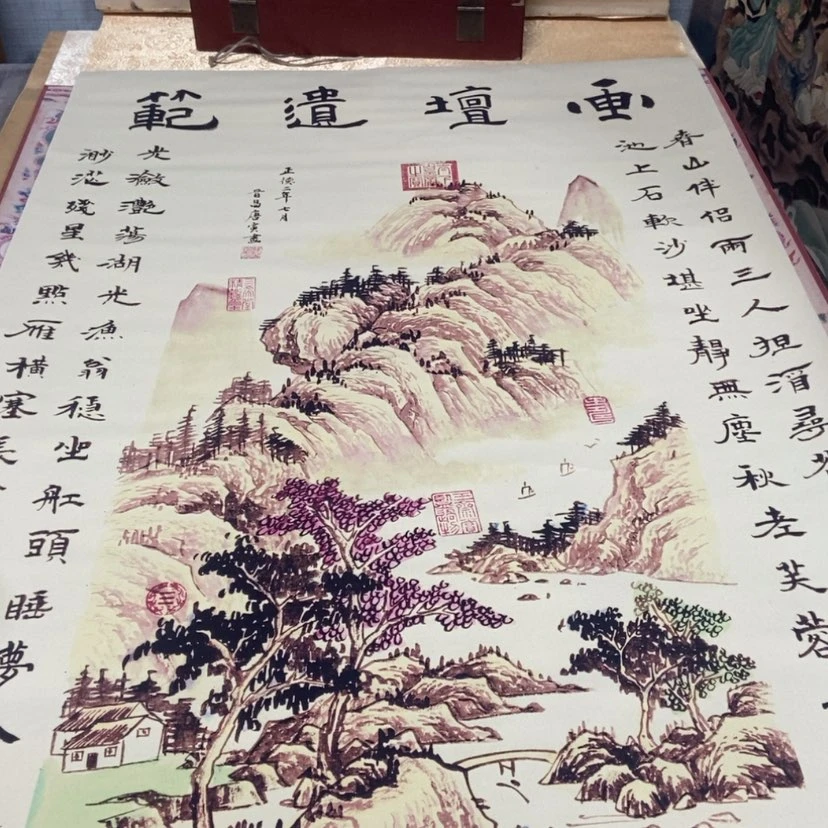 畫壇遺範
春山伴侶兩三人担酒尋花
池上石軟沙堪坐靜無塵秋老芙蓉
正德二年七月
晉昌唐寅畫
光瀲灩蕩湖光漁翁穩坐舡頭睡夢入
渺殘星幾點雁橫塞長